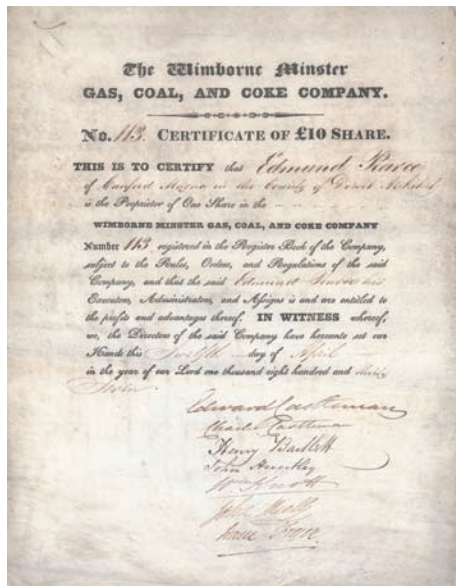 The Wimborne Minster
GAS, COAL, AND COKE COMPANY.
No. 113. CERTIFICATE OF £10 SHARE.
THIS IS TO CERTIFY that Edmund Pearce
of Canford Magna in the County of Dorset Architect
is the Proprietor of One Share in the
WIMBORNE MINSTER GAS, COAL, AND COKE COMPANY
Number 113 registered in the Register Book of the Company,
subject to the Rules, Orders, and Regulations of the said
Company, and that the said Edmund Pearce his
Executors, Administrators, and Assigns is and are entitled to
the profits and advantages thereof. IN WITNESS whereof,
we, the Directors of the said Company have hereunto set our
Hands this Twelfth day of April
in the year of our Lord one thousand eight hundred and thirty
Seven
Edward Castleman
Charles Castleman
Henry Bartlett
John
Wm
John
Isaac